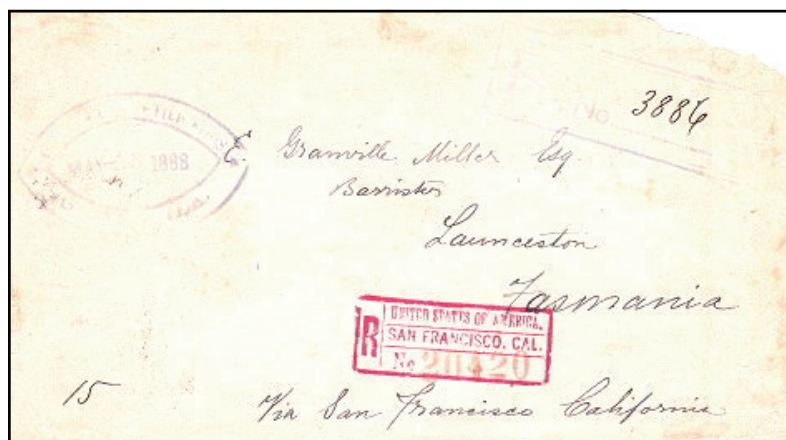 No. 3886
MAY 1888
Granville Miller Esq.
Barrister
Launceston
Tasmania
R
UNITED STATES OF AMERICA.
SAN FRANCISCO, CAL.
No 20420
15
Via San Francisco California